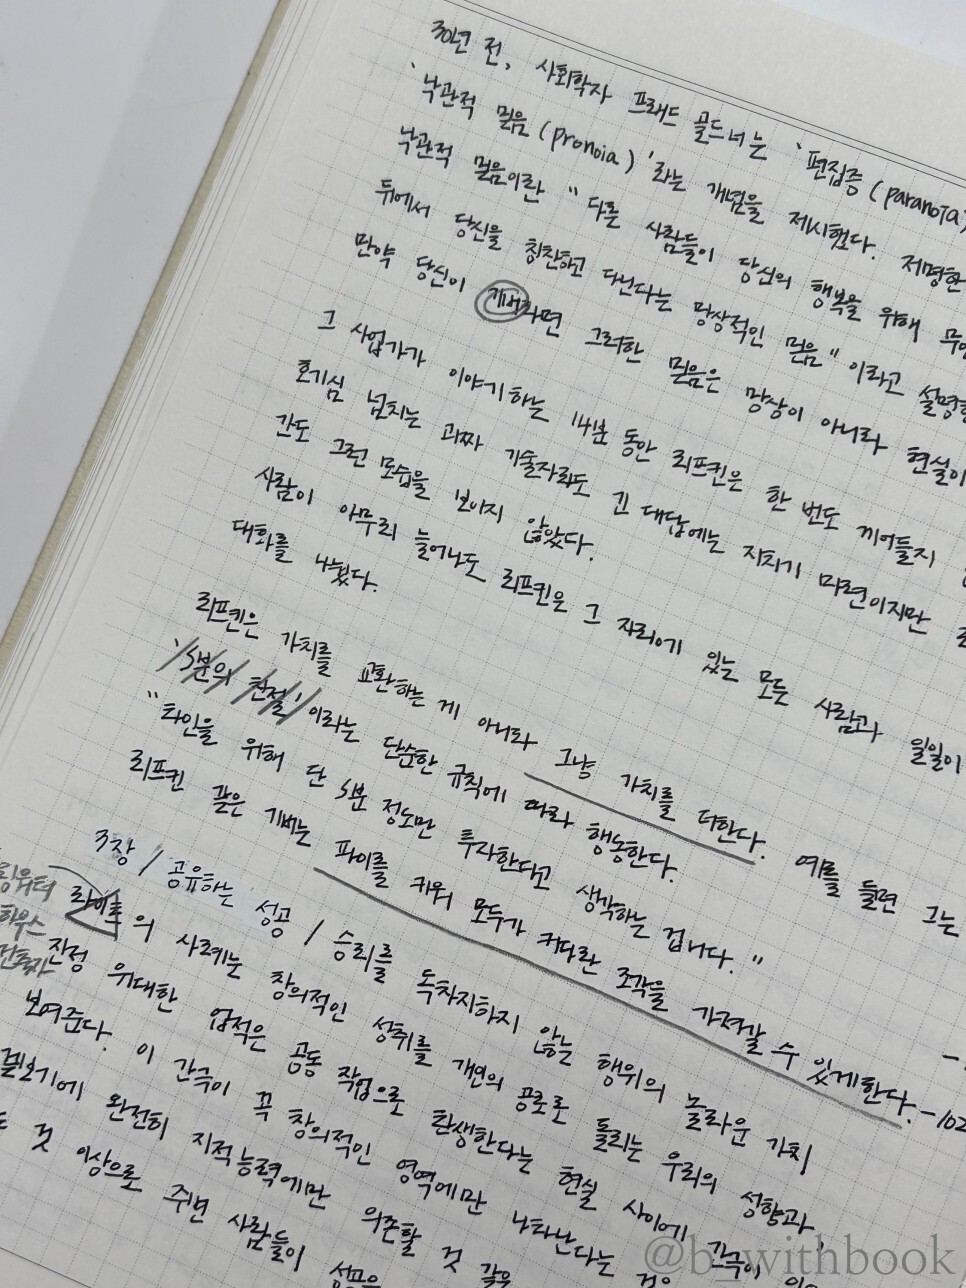 30년 전, 사회학자 프레드 골드너는 '편집증(paranoia)
'낙관적 믿음(pronoia)'라는 개념을 제시했다. 저명한
낙관적 믿음이란 "다른 사람들이 당신의 행복을 위해
뒤에서 당신을 칭찬하고 다닌다는 망상적인 믿음"이라고 설명한
만약 당신이 기버라면 그러한 믿음은 망상이 아니라 현실이
그 사업가가 이야기하는 141분 동안 리프킨은 한 번도 끼어들지
호기심 넘치는 괴짜 기술자라도 긴 대답에는 지치기 마련이지만
간도 그런 모습을 보이지 않았다.
사람이 아무리 늘어나도 리프킨은 그 자리에 있는 모든 사람과 일일이
대화를 나눴다.
리프킨은 가치를 교환하는 게 아니라 그냥 가치를 더한다. 예를 들면 그는
'5분의 친절'이라는 단순한 규칙에 따라 행동한다.
"타인을 위해 단 5분 정도만 투자한다고 생각하는 겁니다."
리프킨 같은 기버는 파이를 키워 모두가 커다란 조각을 가져갈 수 있게한다. -102
3장 / 공유하는 성공 / 승리를 독차지하지 않는 행위의 놀라운 가치
라이트의 사례는 창의적인 성취를 개인의 공로로 돌리는 우리의 성향과
진정 위대한 업적은 공동 작업으로 탄생한다는 현실 사이에 간극이
보여준다. 이 간극이 꼭 창의적인 영역에만 나타난다는 것은
겉보기에 완전히 지적능력에만 의존할 것 같은
것 이상으로 주변 사람들이 성공
@b_withbook